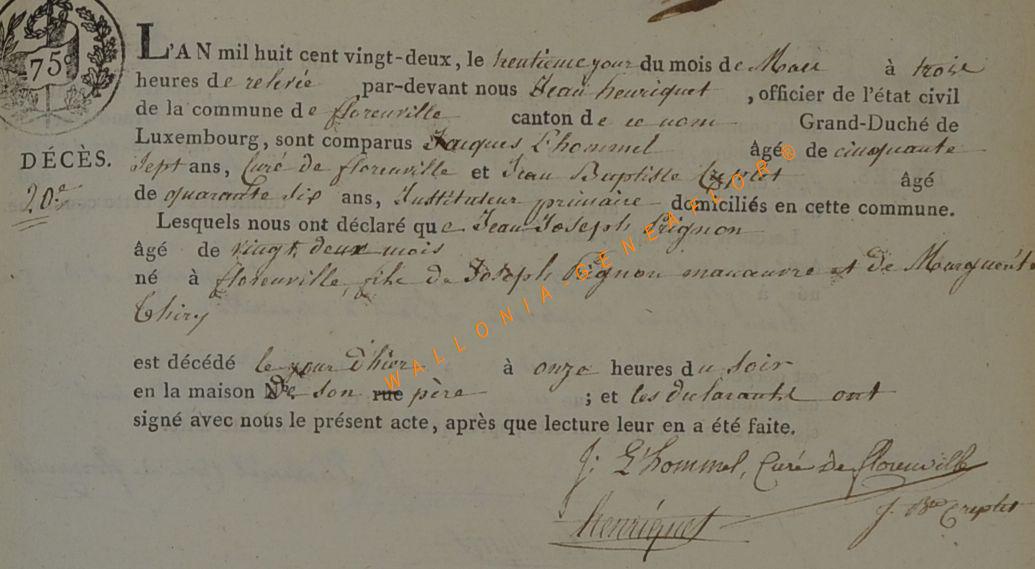 75c
L'AN mil huit cent vingt-deux, le trentieme jour du mois de Mars à trois
heures de relevée par-devant nous Jean henriquet , officier de l'état civil
de la commune de florenville canton de ce nom Grand-Duché de
Luxembourg, sont comparus Jacques L'hommel âgé de cinquante
DÉCÈS.
Sept ans, Curé de florenville et Jean Baptiste âgé
20e
de quarante six ans, Instituteur primaire domiciliés en cette commune.
Lesquels nous ont déclaré que Jean Joseph Pignon
âgé de vingt deux mois
né à florenville, fils de Joseph Pignon manoeuvre et de Marguerite
Thiry
est décédé le jour d'hier à onze heures du soir
en la maison de son rue père ; et les déclarants ont
signé avec nous le présent acte, après que lecture leur en a été faite.
J: L'hommel, Curé de florenville
henriquet
J. Bte
WALLONIA-GENEAFIOR®